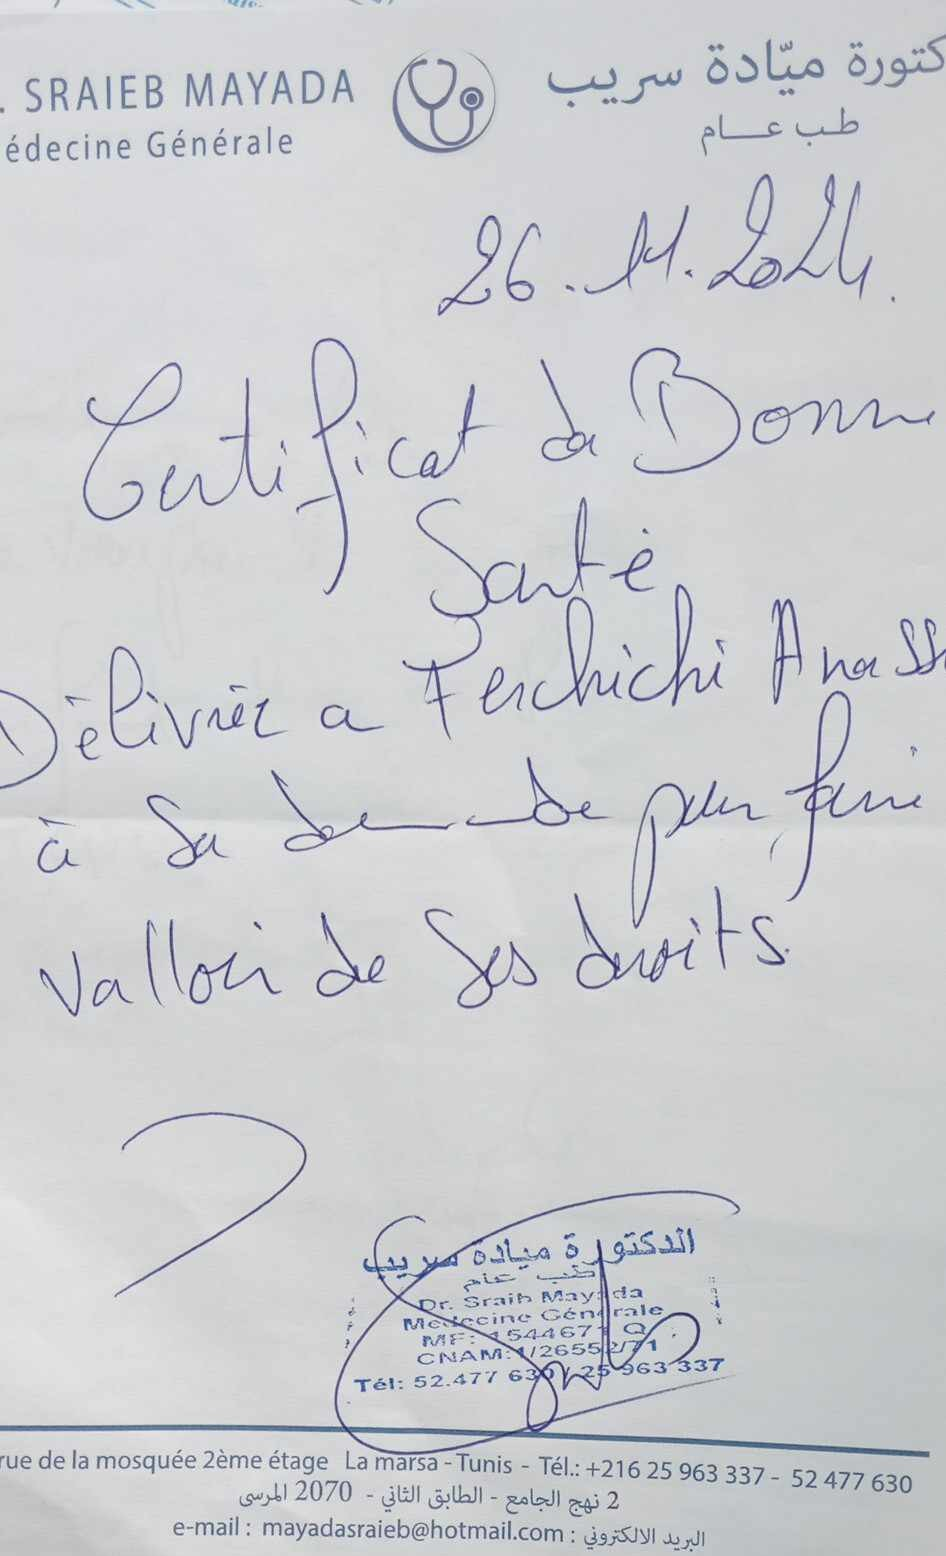 . SRAIEB MAYADA
édecine Générale
كتورة ميّادة سريب
طب عـــام
26.11.2024.
Certificat de Bonne
Santé
Délivrée a Ferchichi Anass
à sa demande pour faire
valloir de ses droits.
الدكتورة ميادة سريب
طب عام
Dr. Sraib Mayada
Medecine Générale
MF: 1544671 Q
CNAM:1/26552/71
Tél: 52.477 630 / 25 963 337
rue de la mosquée 2ème étage La marsa - Tunis - Tél.: +216 25 963 337 - 52 477 630
2 نهج الجامع - الطابق الثاني - 2070 المرسى
e-mail : mayadasraieb@hotmail.com : البريد الالكتروني